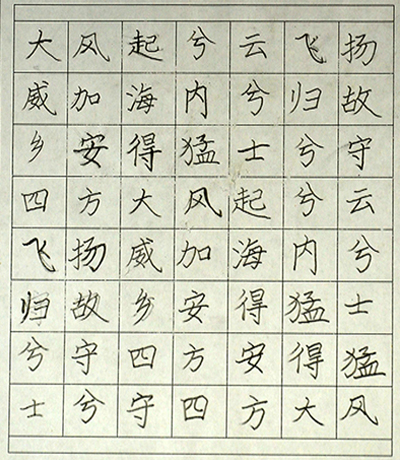 大风起兮云飞扬
威加海内兮归故
乡安得猛士兮守
四方大风起兮云
飞扬威加海内兮
归故乡安得猛士
兮守四方安得猛
士兮守四方大风